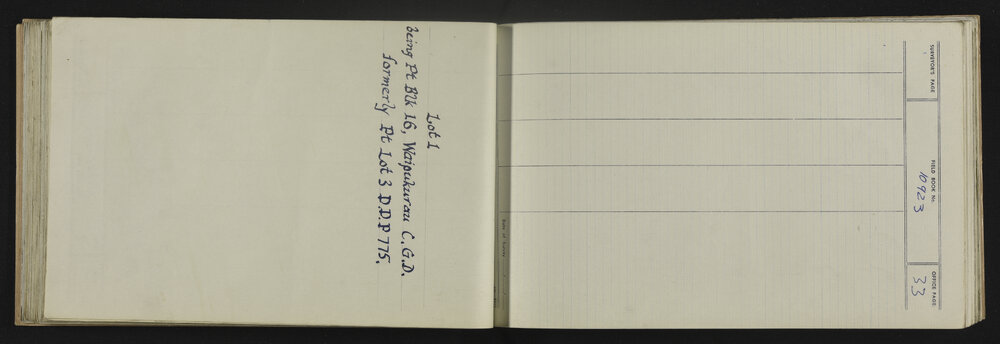 Lot 1
Being Pt Blk 16, Waipukurau C.G.D.
formerly Pt Lot 3 D.D.P 775.
SURVEYOR'S PAGE
FIELD BOOK No.
10923
OFFICE PAGE
33
Date of Survey